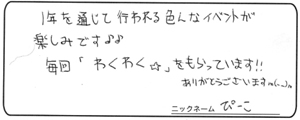 1年を通じて行われる色んなイベントが
楽しみです♪♪
毎回「わくわく☆」をもらっています!!
ありがとうございますm(..)m
ニックネーム ぴーこ